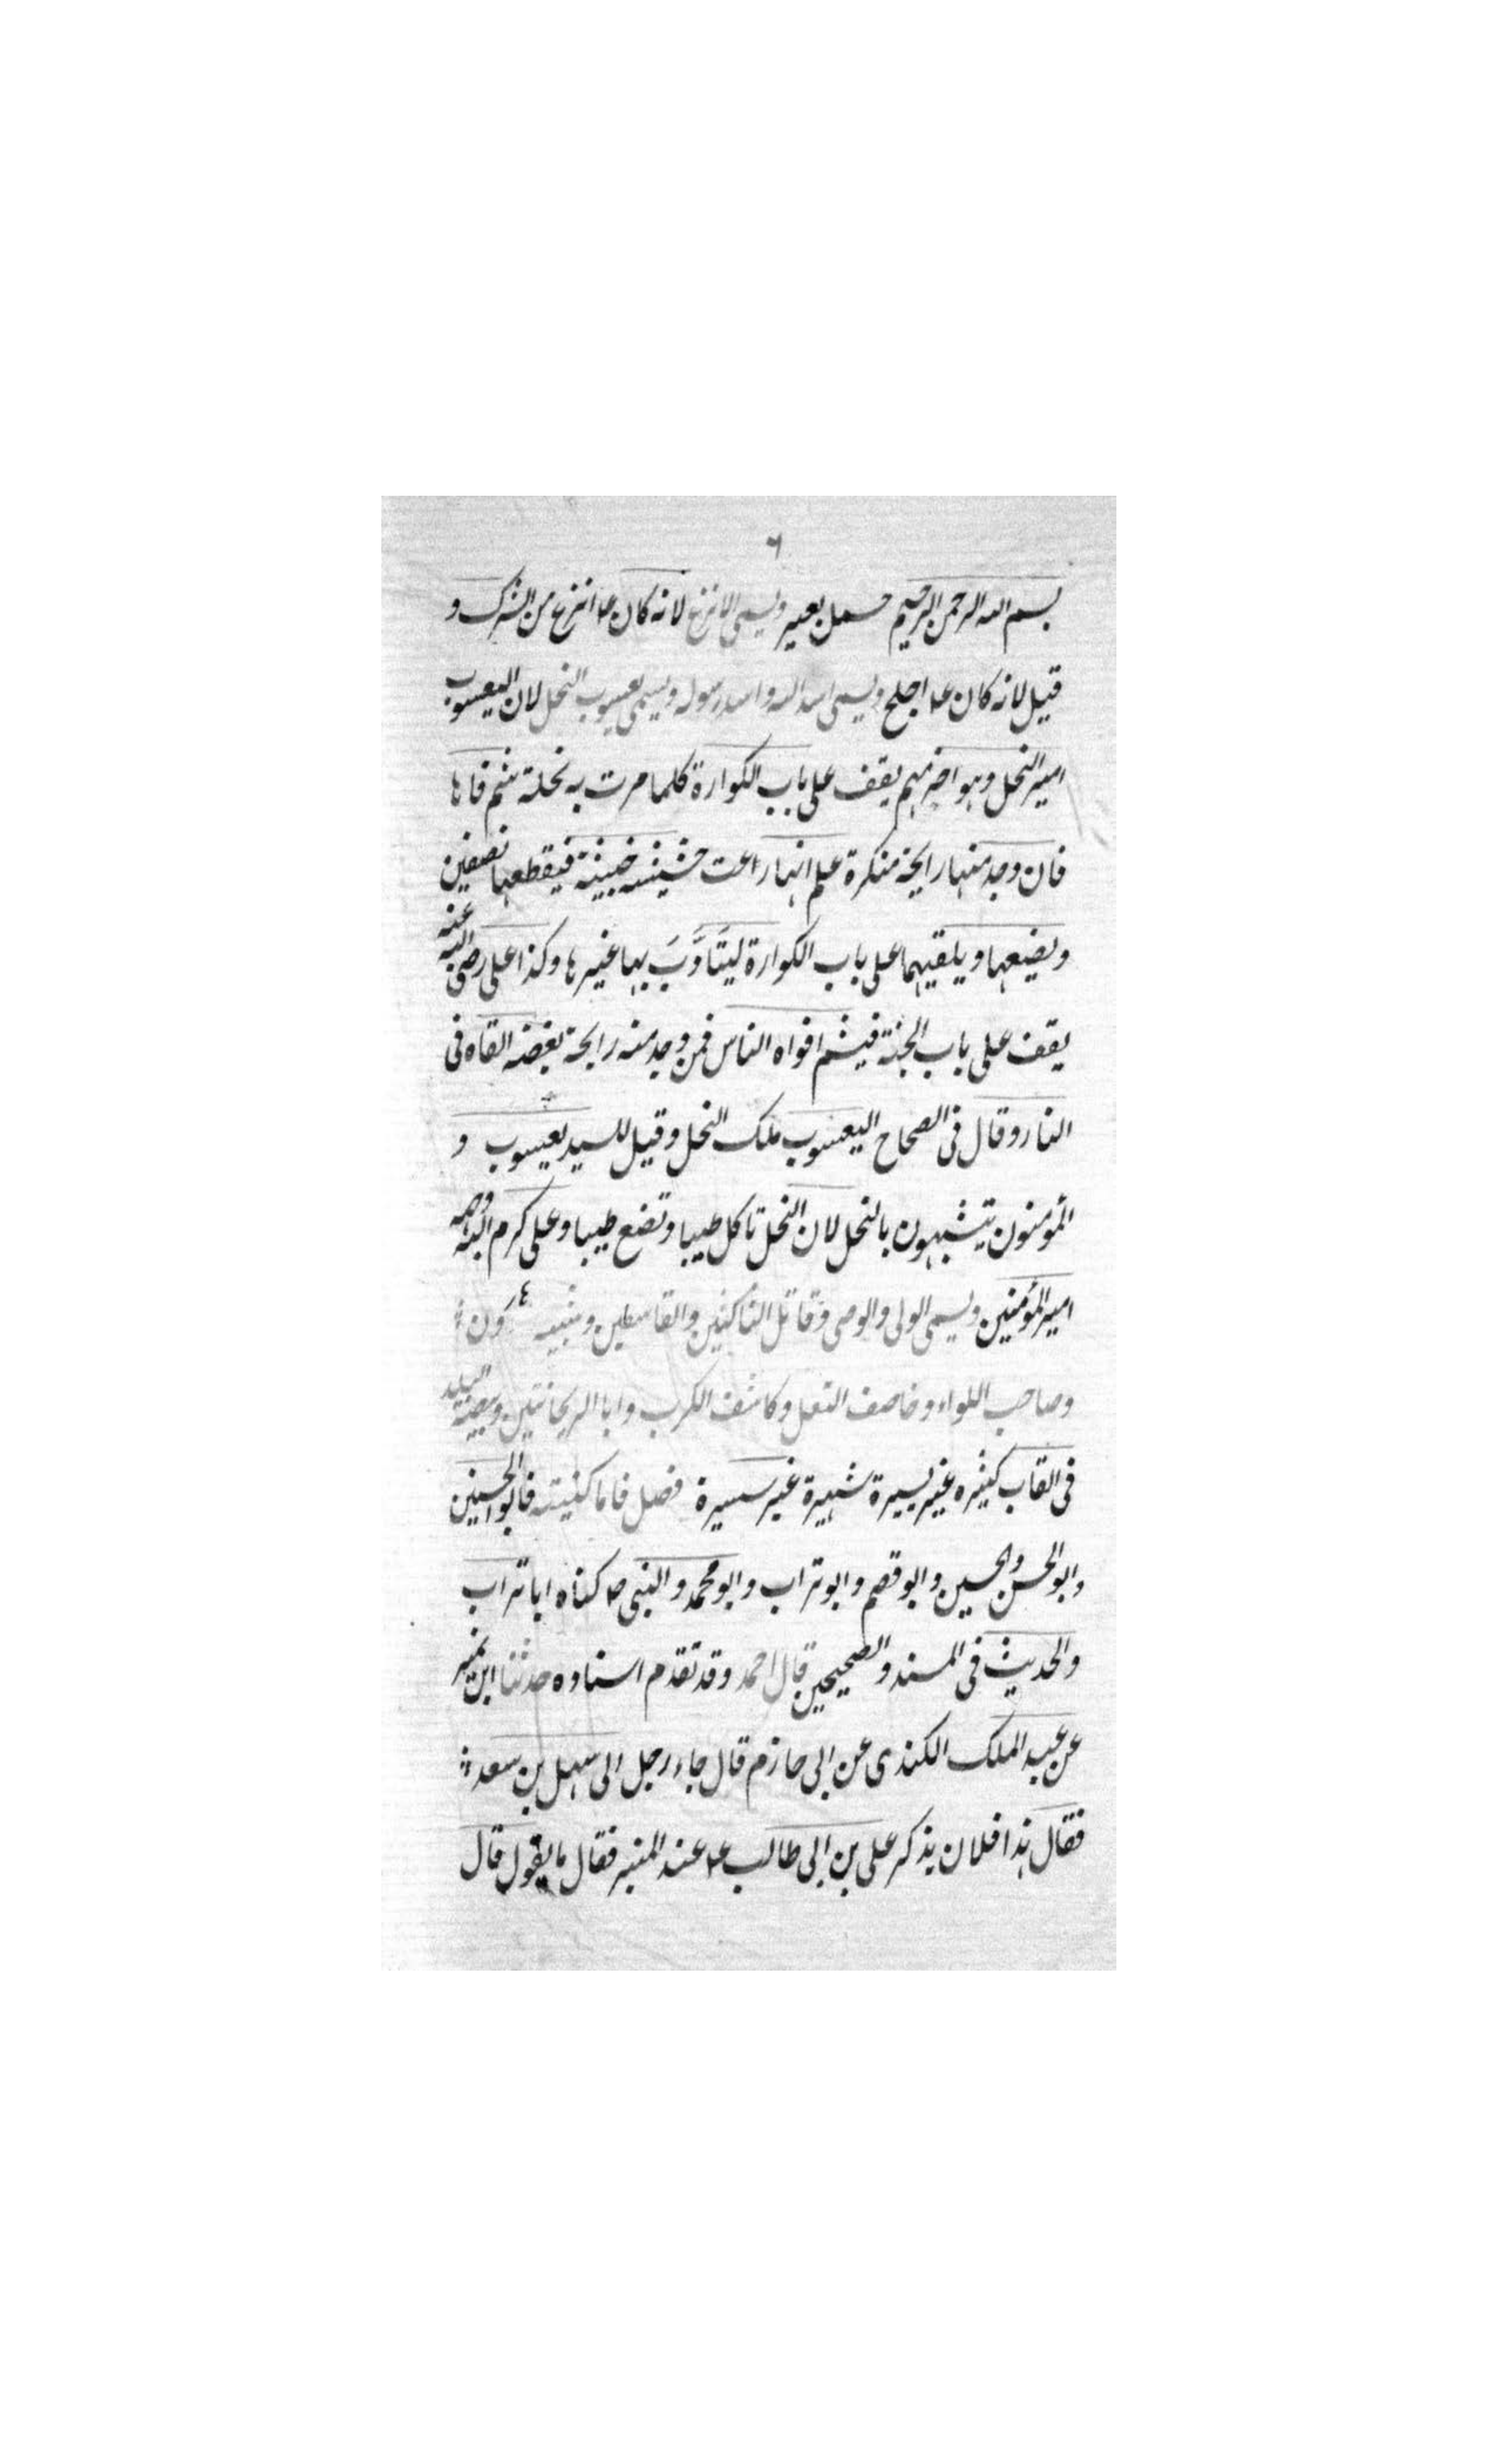 ٦
بسم الله الرحمن الرحيم ويسمى الانزع لانه كان ع انزع من الشرك و
قيل لانه كان ع اجلح ويسمى اسد الله واسد رسوله ويسمى يعسوب النحل لان اليعسوب
امير النحل وهو اخبرهم يقف على باب الكوارة كلما مرت به نحلة شم فاها
فان وجد منها رايحة منكرة علم انها راعت حشيشة خبيثة فيقطعها نصفين
ويضيعها ويلقيهما على باب الكوارة ليتَأَدَّبَ بها غيرها وكذا على رضى الله عنه
يقف على باب الجنة فيشم افواه الناس فمن وجد منه رايحة بغضه القاه فى
النار وقال فى الصحاح اليعسوب ملك النحل وقيل للسيد يعسوب و
المؤمنون يتشبهون بالنحل لان النحل تاكل طيبا وتضع طيبا وعلى كرم الله وجهه
امير المؤمنين ويسمى الولى والوصى وقاتل الناكثين والقاسطين وشبيه هارون
وصاحب اللواء وخاصف النعل وكاشف الكرب وابا الريحانتين وبيضة البلد
فى القاب كثيره غير يسيرة شهيرة غير ستيرة فصل فاما كنيته فابو الحسنين
وابو الحسن والحسين وابو قصم وابو تراب وابو محمد والنبى ص كناه ابا تراب
والحديث فى المسند والصحيحين قال احمد وقد تقدم اسناده حدثنا ابن نمير
عن عبد الملك الكندى عن ابى حازم قال جاء رجل الى سهل بن سعد
فقال هذا فلان يذكر على بن ابى طالب ع عند المنبر فقال ما يقول قال